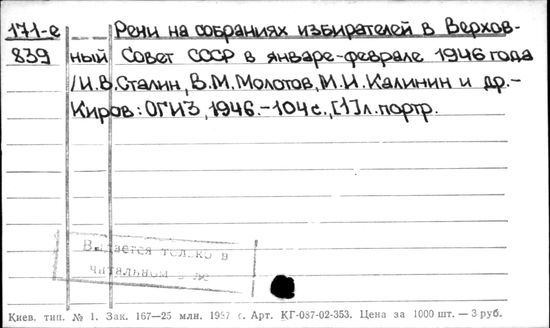 171-е Речи на собраниях избирателей в Верхов-
839 ный Совет СССР в январе-феврале 1946 года
/И.В.Сталин, В.М.Молотов, М.И.Калинин и др.-
Киров: ОГИЗ, 1946.-104с., [1]л.портр.
Выдается только в
читальном зале
Киев. тип. № 1. Зак. 167—25 млн. 1987 г. Арт. КГ-087-02-353. Цена за 1000 шт. — 3 руб.